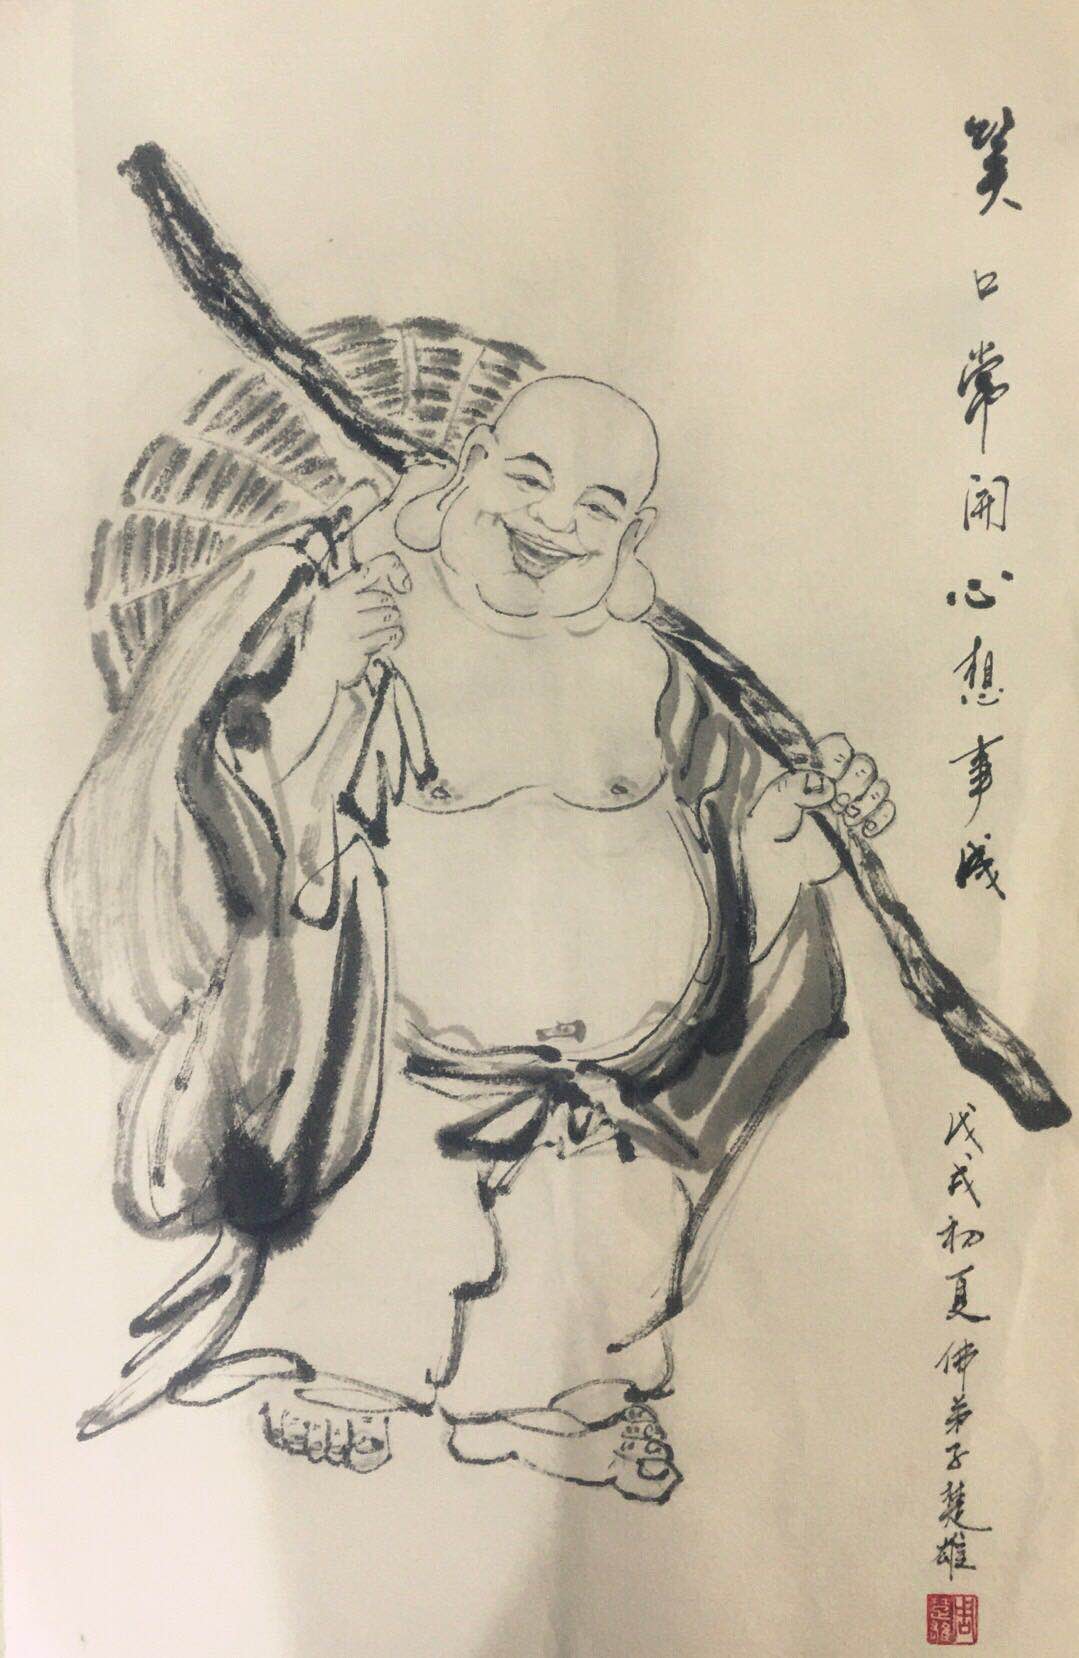 笑口常開心想事成
戊戌初夏佛弟子楚雄
周楚雄